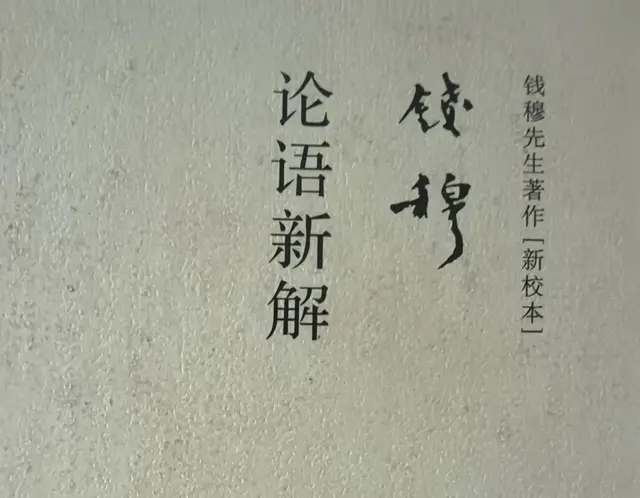 钱穆先生著作[新校本]
钱穆
论语新解